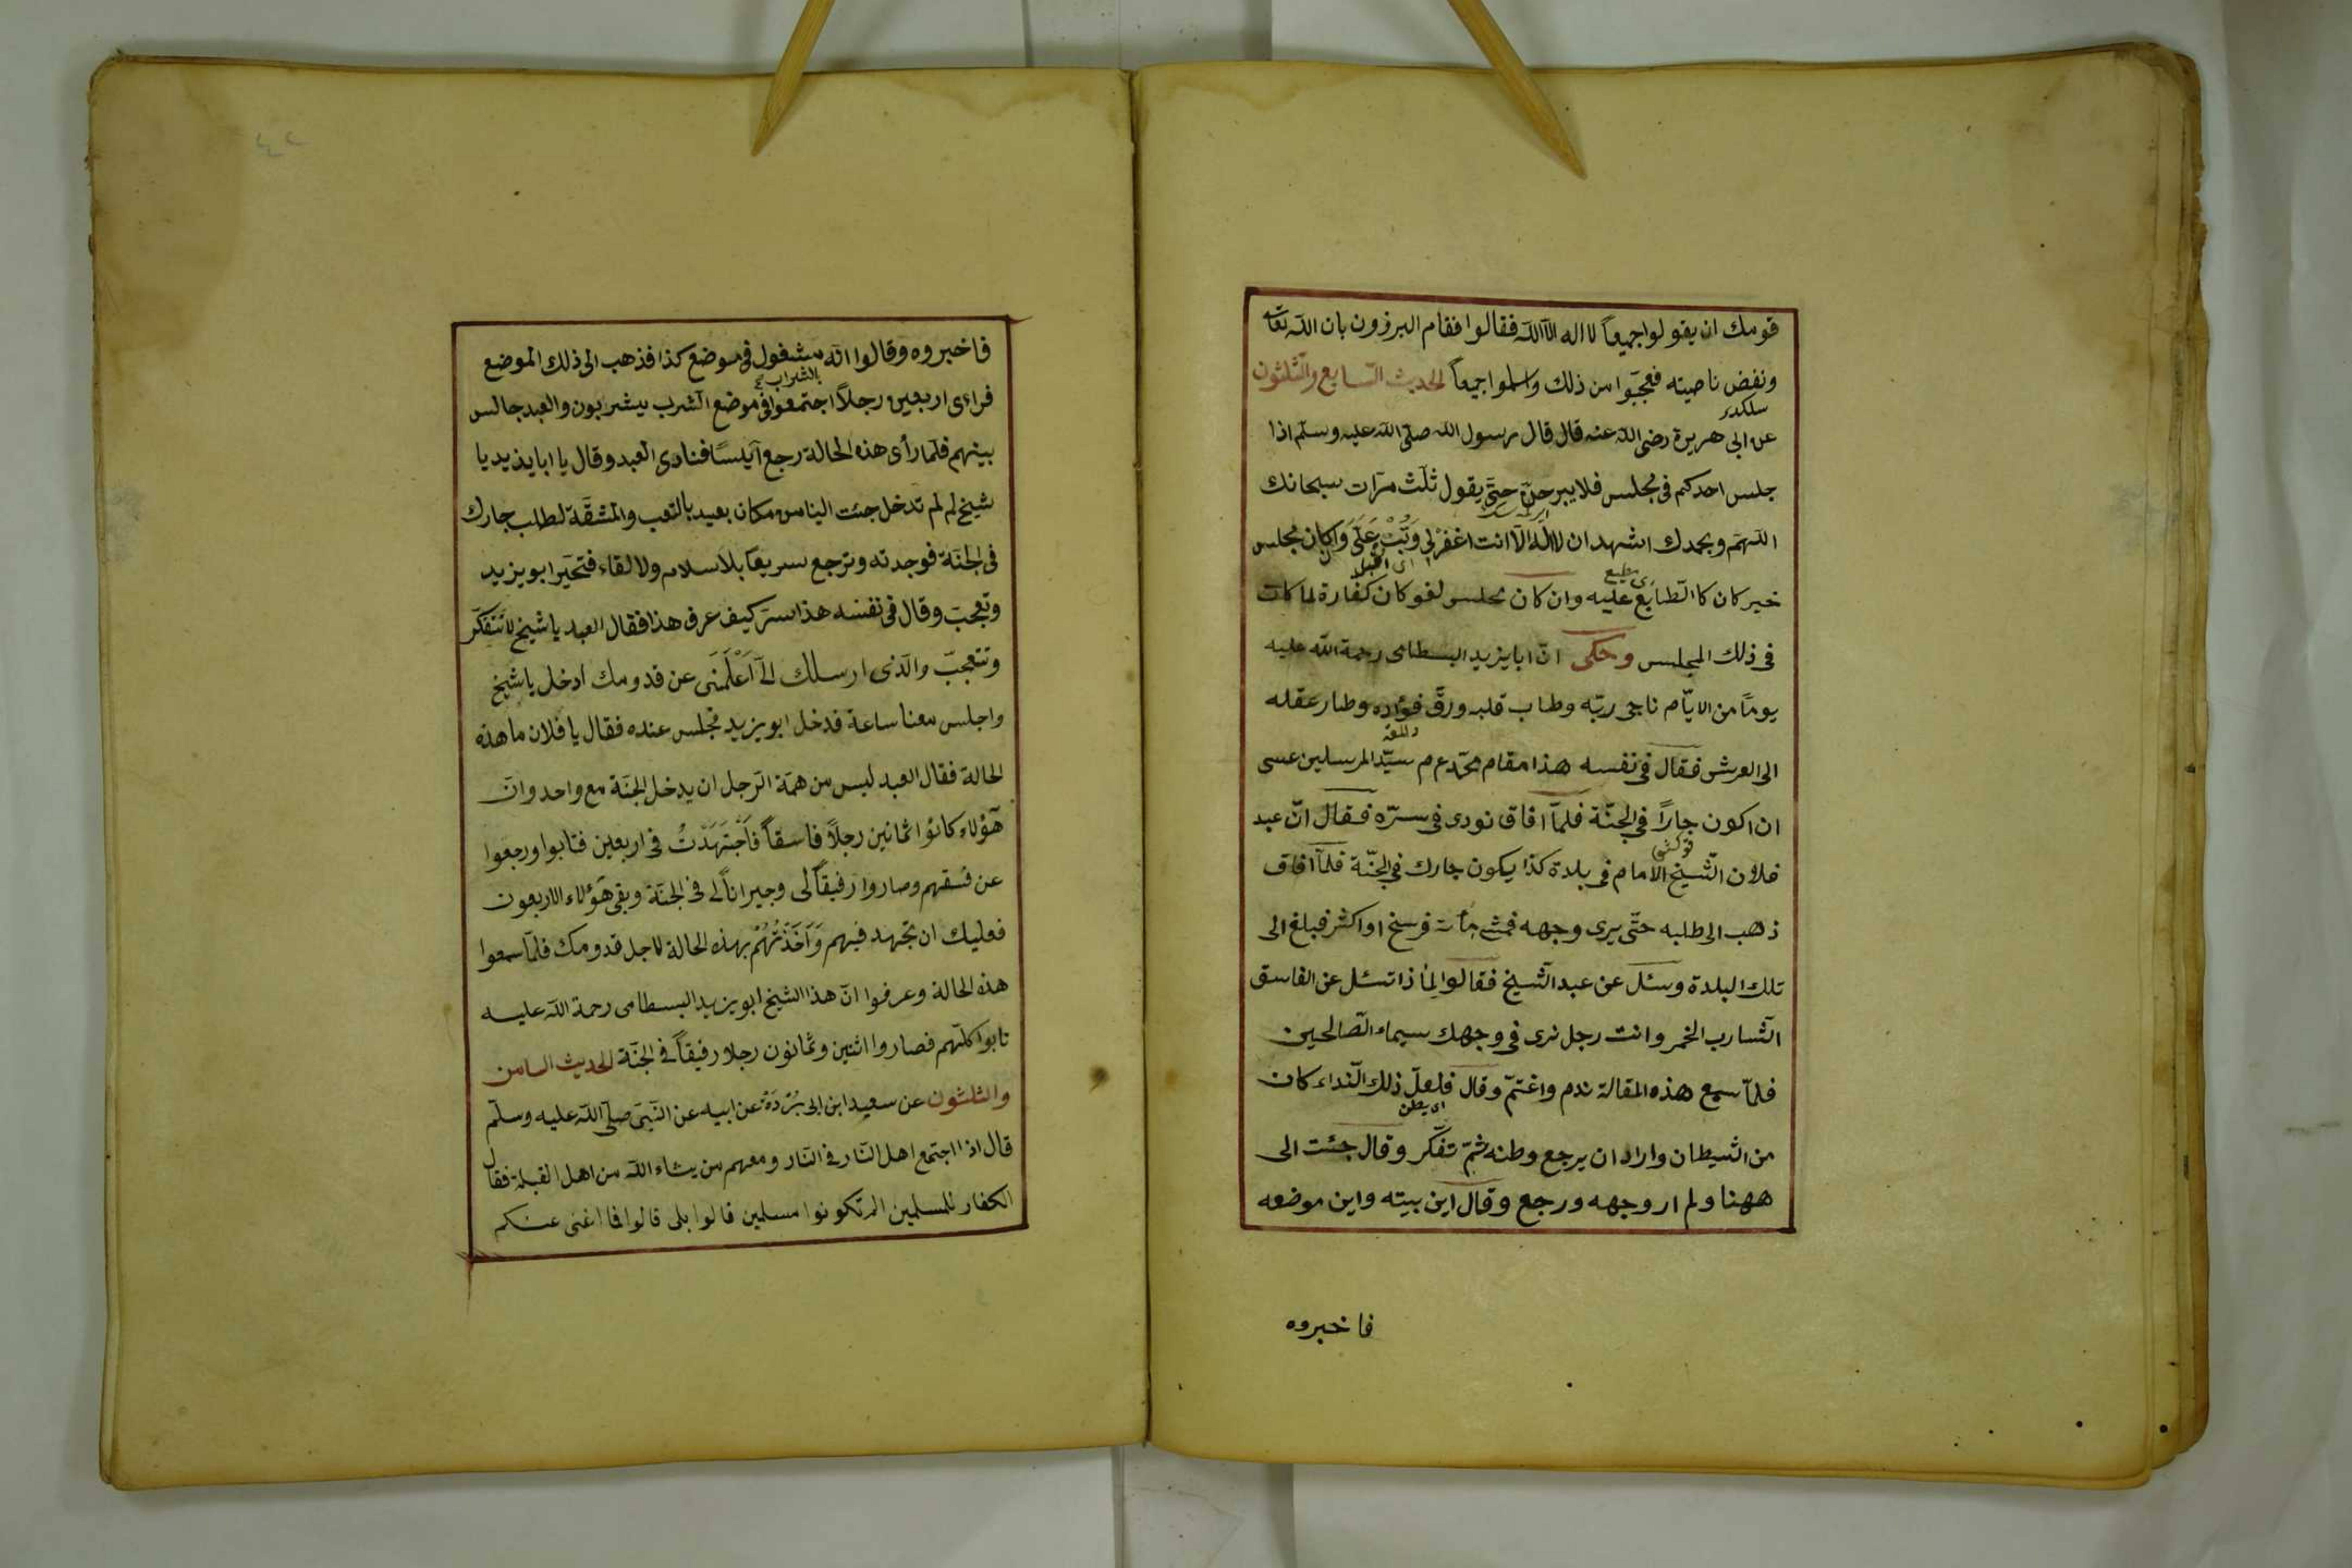 قومك ان يقولوا جميعاً لا اله الا الله فقالوا فقام البرزون بان الله تعا
ونفض ناصيته فعجبوا من ذلك واسلموا جميعاً الحديث السابع والثلثون
سلكدى
عن ابى هريرة رضى الله عنه قال قال رسول الله صلى الله عليه وسلم اذا
جلس احدكم فى مجلس فلا يبرحن حتى يقول ثلث مرات سبحانك
اللهم وبحمدك اشهد ان لا اله الا انت اغفر لى وَتُبْ عَلَىَّ وَاِنْ كان مجلس
اى اقبل
خير كان كالطابع عليه وان كان مجلس لغو كان كفارة لما كان
فى ذلك المجلس وحكى ان ابا يزيد البسطامى رحمة الله عليه
يوماً من الايام ناجى ربه وطاب قلبه ورقّ فؤاده وطار عقله
الى العرش فقال فى نفسه هذا مقام محمد عم سيّد المرسلين عسى
ان اكون جاراً فى الجنّة فلمّا افاق نودى فى سرّه فقال انّ عبد
قوكشى
فلان الشّيخ الامام فى بلدة كذا يكون جارك فى الجنّة فلمّا افاق
ذهب الى طلبه حتّى يرى وجهه فمشى مأة فرسخ او اكثر فبلغ الى
تلك البلدة وسئل عن عبد الشّيخ فقالوا لماذا تسئل عن الفاسق
الشّارب الخمر وانت رجل نرى فى وجهك سيماء الصّالحين
فلمّا سمع هذه المقالة ندم واغتمّ وقال فلعلّ ذلك النّداء كان
اى يظن
من الشيطان واراد ان يرجع وطنه ثمّ تفكّر وقال جئت الى
ههنا ولم ار وجهه ورجع وقال اين بيته واين موضعه
فاخبروه
فاخبروه وقالوا انّه مشغول فى موضع كذا فذهب الى ذلك الموضع
بالشراب
فراءى اربعين رجلاً اجتمعوا فى موضع الشرب يشربون والعبد جالس
بينهم فلمّا رأى هذه الحالة رجع آيساً فنادى العبد وقال يا ابا يذيد يا
شيخ لم لم تدخل جئت الينا من مكان بعيد بالتعب والمشقّة لطلب جارك
فى الجنّة فوجدته وترجع سريعاً بلا سلام ولا لقاء فتحيّر ابو يزيد
وتعجب وقال فى نفسه هذا سرّ كيف عرف هذا فقال العبد يا شيخ لا تتفكّر
وتتعجبّ والّذى ارسلك الىّ اَعْلَمَنِى عن قدومك ادخل يا شيخ
واجلس معنا ساعة فدخل ابو يزيد فجلس عنده فقال يا فلان ما هذه
الحالة فقال العبد ليس من همّة الرّجل ان يدخل الجنّة مع واحد وانّ
هٓؤلاء كانوا ثمانين رجلاً فاسقاً فَاَجْتَهَدْتُ فى اربعين فتابوا ورجعوا
عن فسقهم وصاروا رفيقاً لى وجيراناً لى فى الجنّة وبقى هٓؤلاء الاربعون
فعليك ان تجتهد فيهم وَآخَذْتُهُمْ بهذه الحالة لاجل قدومك فلمّا سمعوا
هذه الحالة وعرفوا انّ هذا الشيخ ابو يزيد البسطامى رحمة الله عليه
تابوا كلّهم فصاروا اثنين وثمانون رجلا رفيقاً فى الجنّة الحديث الثامن
والثلثون عن سعيد ابن ابى بُرْدَةَ عن ابيه عن النّبىّ صلّى الله عليه وسلّم
قال اذا اجتمع اهل النّار فى النّار ومعهم من يشاء الله من اهل القبلة فقال
الكفار للمسلمين الم تكونوا مسلمين قالوا بلى قالوا فما اغنى عنكم